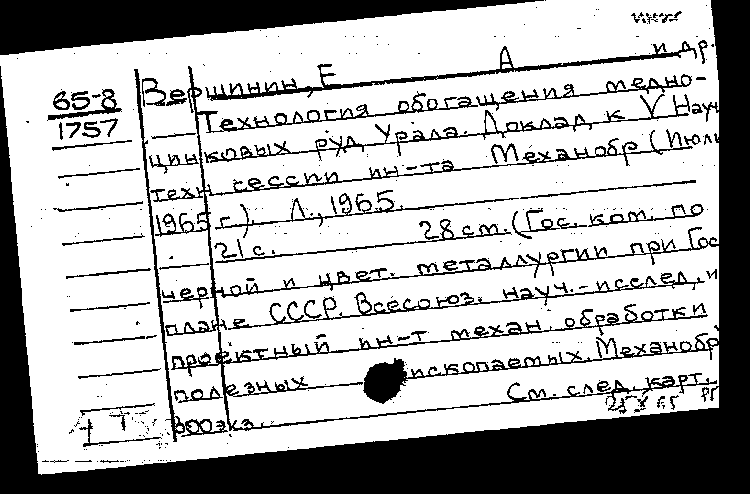 65-8
1757
Вершинин, Е А и др.
Технология обогащения медно-
цинковых руд Урала. Доклад к V Науч
техн сессии ин-та Механобр (Июль
1965 г.). Л., 1965.
21 с. 28 см. (Гос. ком. по
черной и цвет. металлургии при Гос
плане СССР. Всесоюз. науч.-исслед. и
проектный ин-т механ. обработки
полезных ископаемых. Механобр
См. след. карт.
300 экз.